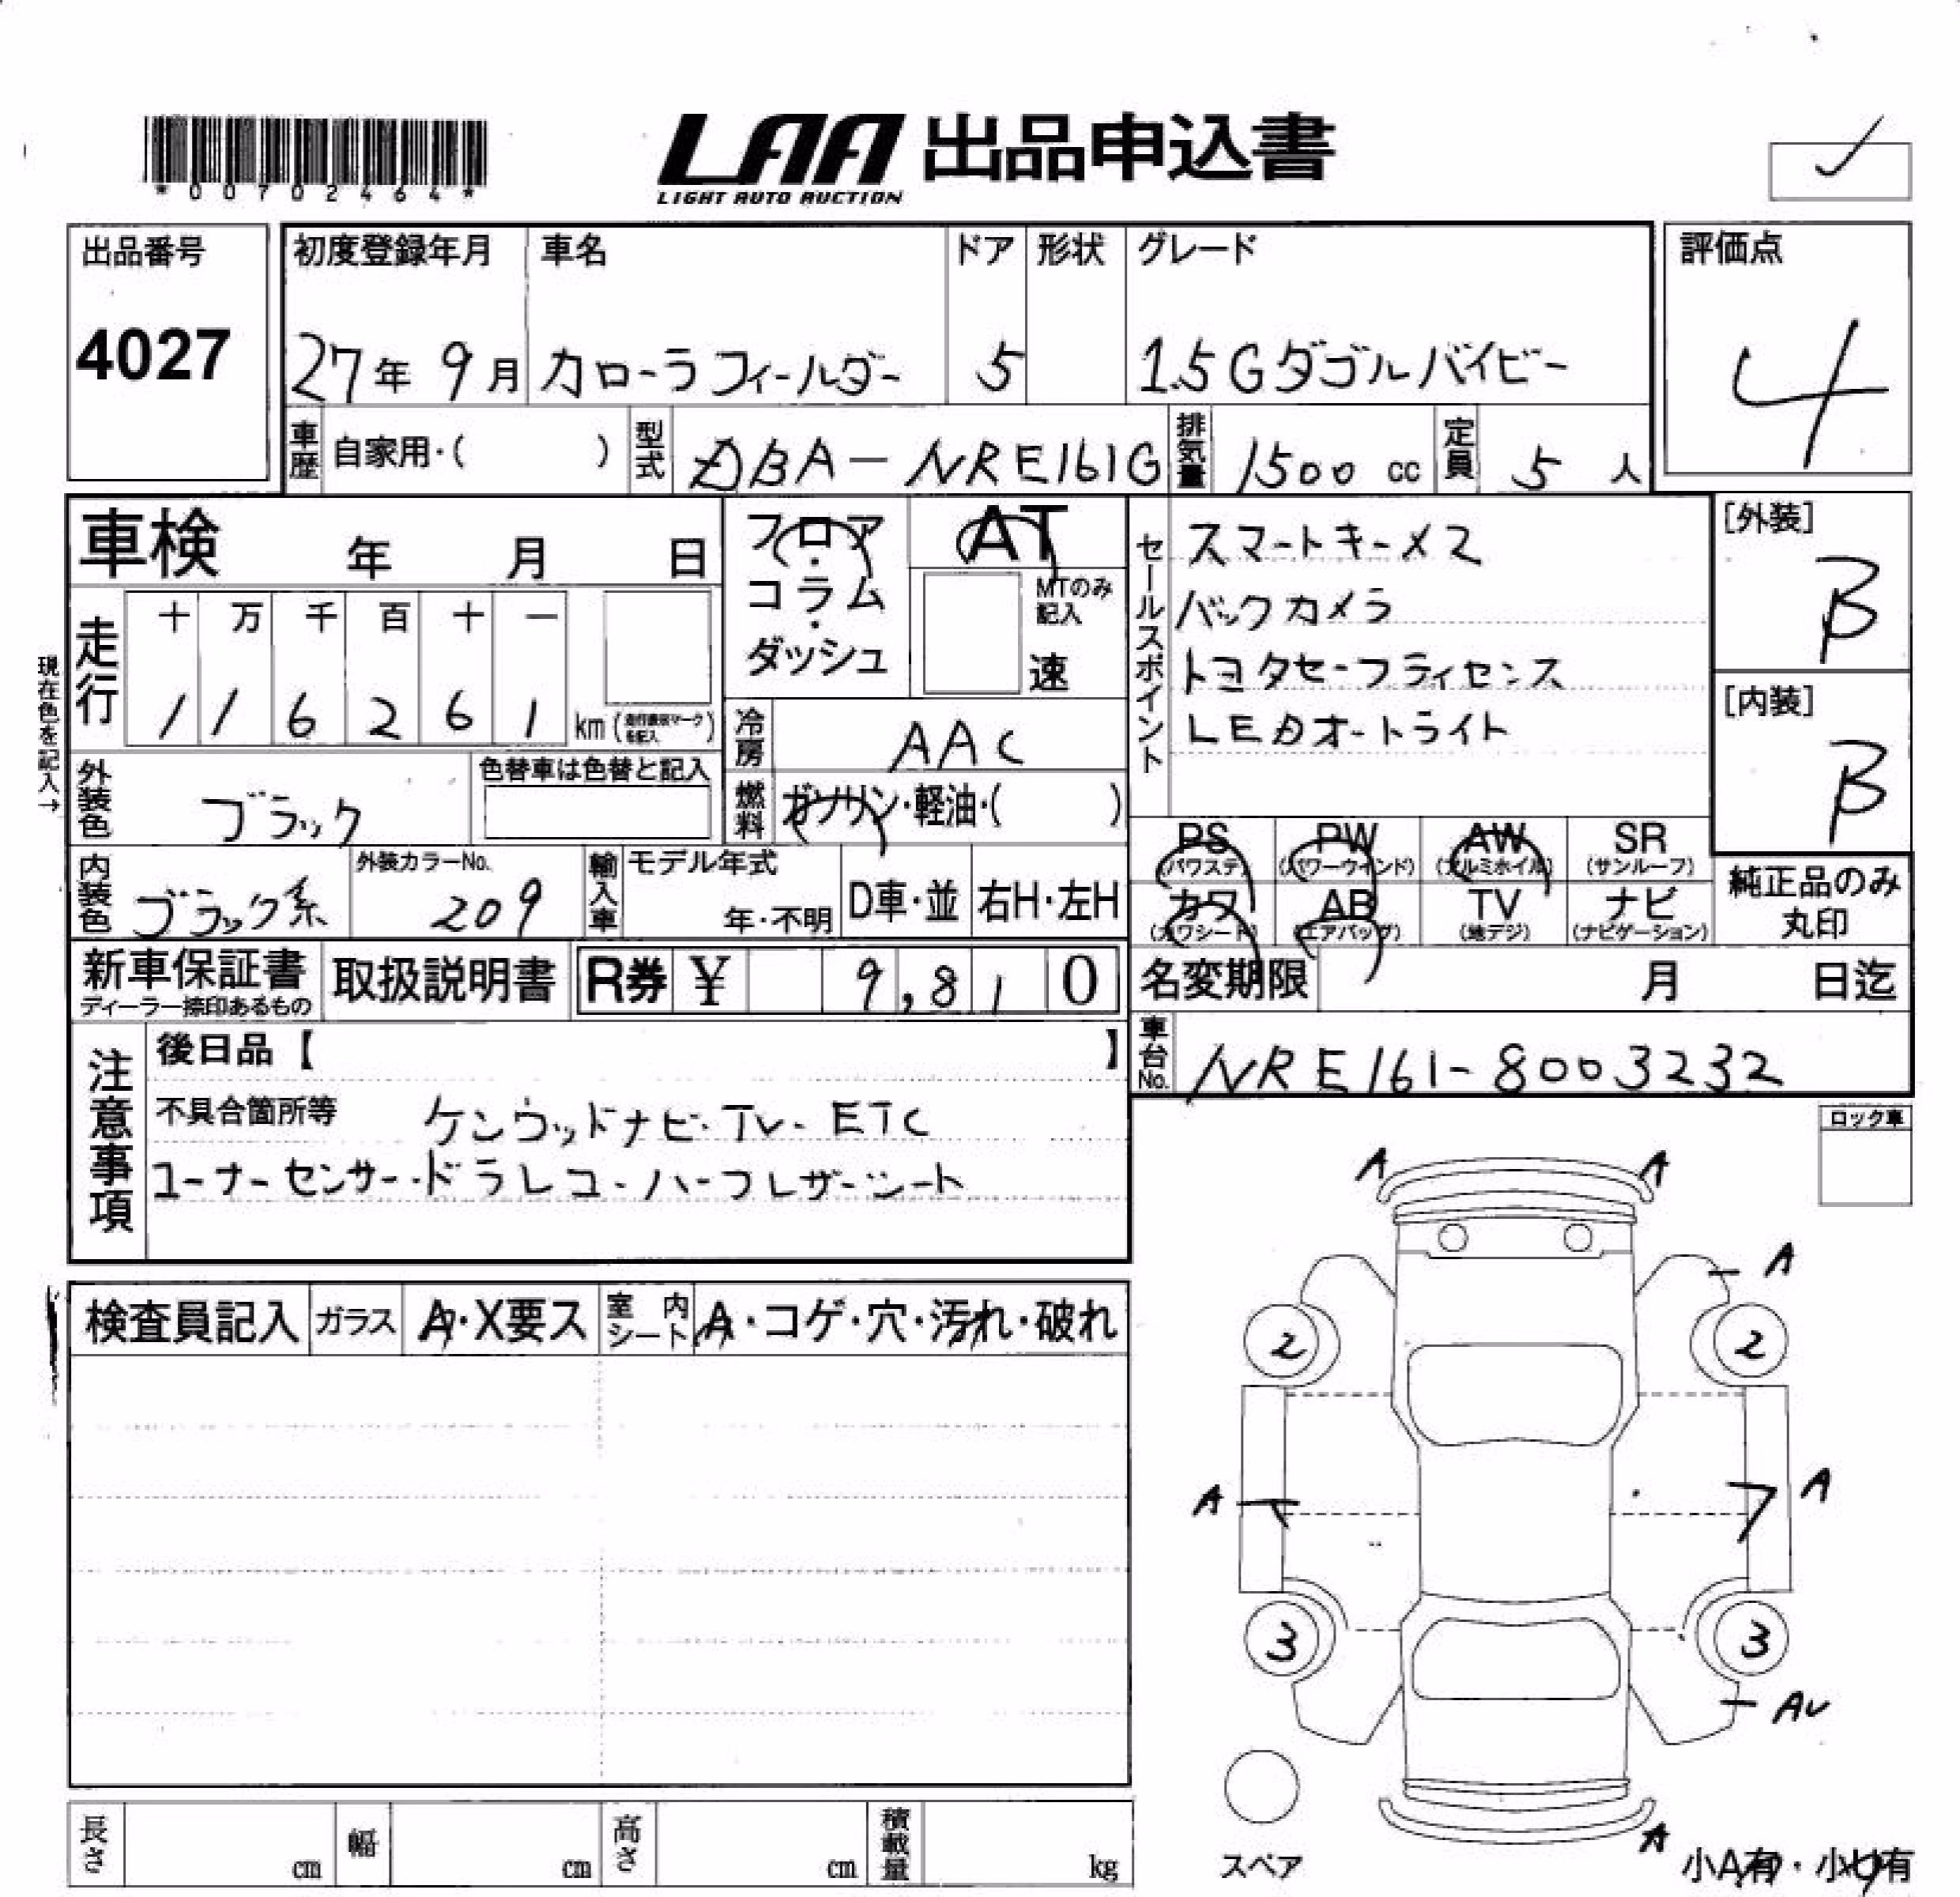 *00702464*
LAA 出品申込書
LIGHT AUTO AUCTION
出品番号
4027
初度登録年月 車名 ドア 形状 グレード
27年 9月 カローラフィールダー 5 1.5Gダブルバイビー
評価点
4
車歴 自家用・( ) 型式 DBA-NRE161G 排気量 1500 cc 定員 5 人
車検 年 月 日
フロア・コラム・ダッシュ
AT
MTのみ記入
速
セールスポイント
スマートキーメ2
バックカメラ
トヨタセーフティセンス
LEDオートライト
[外装]
B
[内装]
B
現在色を記入→
走行 十 万 千 百 十 一
1 1 6 2 6 1 km
冷房 AAC
外装色 ブラック
色替車は色替と記入
燃料 ガソリン・軽油・( )
PS (パワステ) PW (パワーウィンド) AW (アルミホイル) SR (サンルーフ)
カワ (カワシート) AB (エアバッグ) TV (地デジ) ナビ (ナビゲーション)
純正品のみ丸印
内装色 ブラック系 外装カラーNo. 209 輸入車 モデル年式 年・不明 D車・並 右H・左H
新車保証書 ディーラー捺印あるもの 取扱説明書 R券 ¥ 9,810
名変期限 月 日迄
車台No. NRE161-8003232
注意事項
後日品【 】
不具合箇所等 ケンウッドナビ・TV・ETC
コーナーセンサー・ドラレコ・ハーフレザーシート
ロック車
検査員記入 ガラス A・X要ス 室内シート A・コゲ・穴・汚れ・破れ
A A
A
2 2
A A
3 3
AU
A
スペア
小A有・小U有
長さ cm 幅 cm 高さ cm 積載量 kg